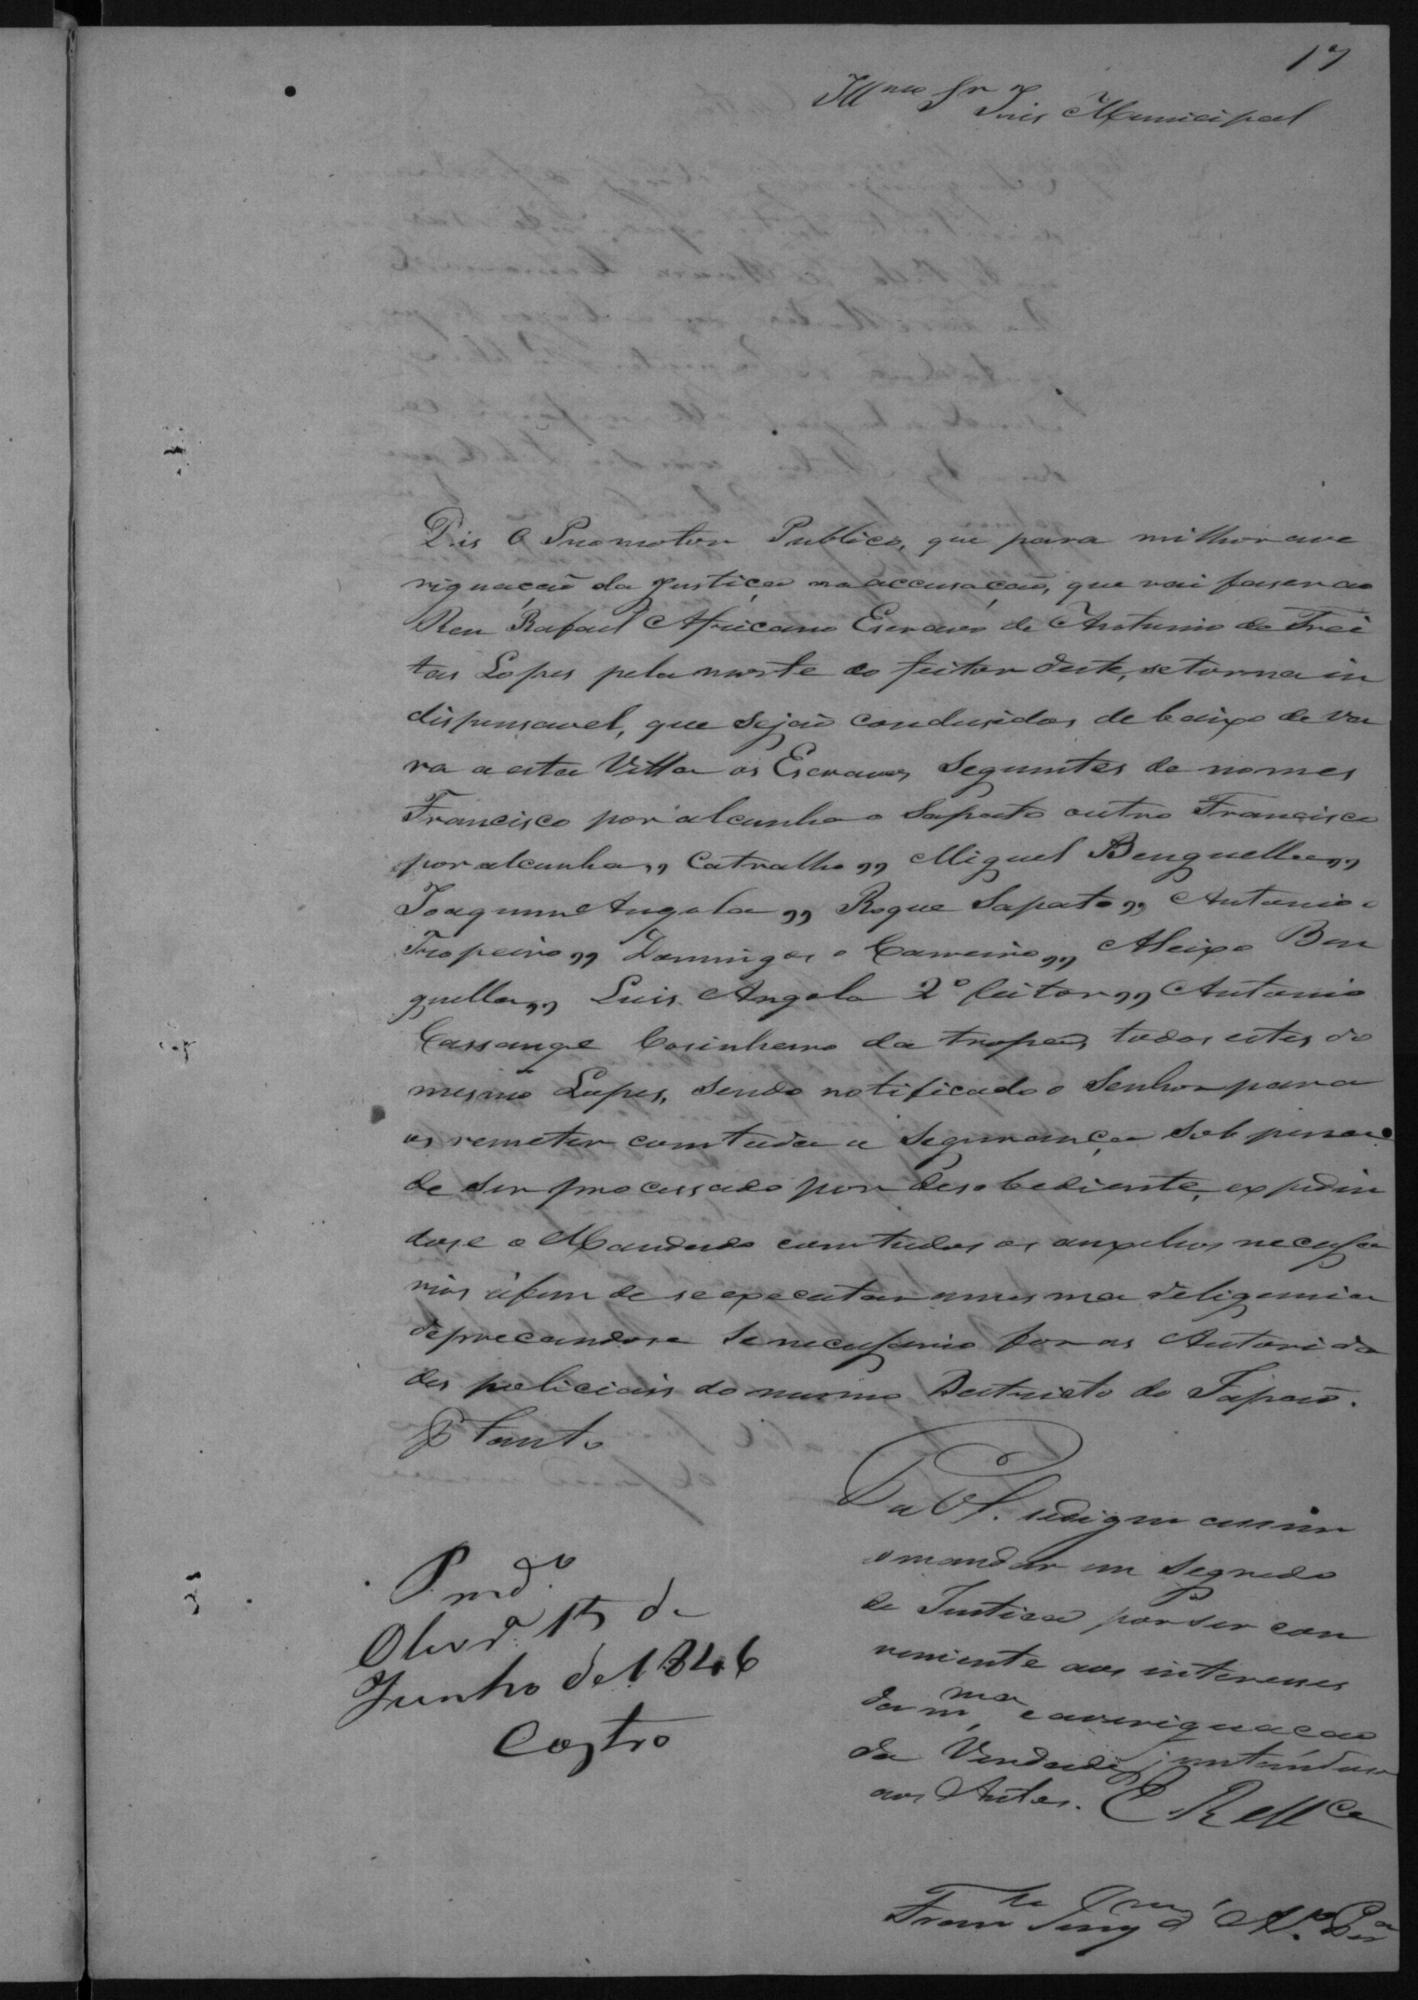 17
Illmo Snr Juis Municipal
Dis o Promotor Publico, que para milhor ave
riguação da Justiça na accusação, que vai faser ao
Reu Rafael Africano Escravo de Antonio de Frei
tas Lopes pela morte do feitor deste, se torna in
dispensavel, que sejão condusidos de baixo de va
ra a esta Villa os Escravos seguintes de nomes
Francisco por alcunha o Sapato outro Francisco
por alcunha,, Catralho,, Miguel Benguella,,
Joaquim Angola,, Roque Sapato,, Antonio o
Tropeiro,, Domingos o Carreiro,, Aleixo Ben
guella,, Luis Angola 2º feitor,, Antonio
Cassange Cosinheiro da tropa, todos estes do
mesmo Lopes, sendo notificado o Senhor para
os remeter com toda a segurança sob pena
de ser processado por desobediente, expedin
dose o Mandado com todos os auxilios necessa
rios áfim de se executar a mesma deligencia
deprecandose se necessario for as Autorida
des policiais do mesmo Destricto do Japão.
P tanto
P a V.S. se digne assim
o mandar em segredo
de Justica por ser con
veniente aos interesses
da mma e averiguacao
da Verdade juntandose
aos Autos. E R Mce
Pmdo
Olivra 15 de
Junho de 1846
Castro